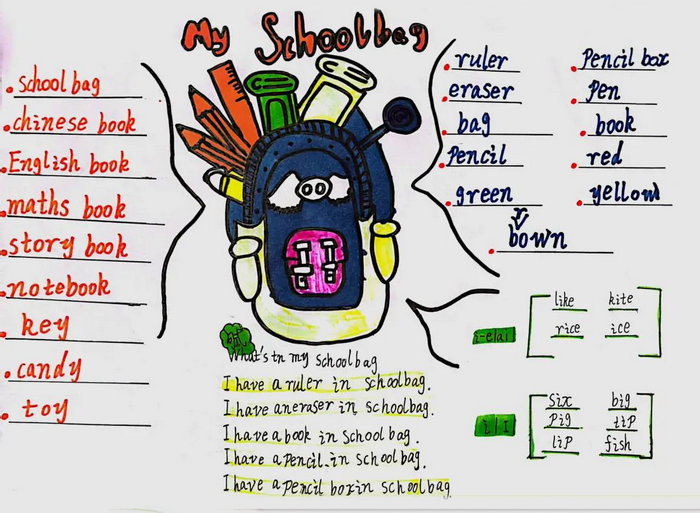 My Schoolbag
school bag
chinese book
English book
maths book
story book
notebook
key
candy
toy
ruler
eraser
bag
pencil
green
Pencil box
pen
book
red
yellow
bown
i-e/ai/
like kite
rice ice
i /I/
six big
pig tip
lip fish
What's in my schoolbag
I have a ruler in schoolbag.
I have aneraser in schoolbag.
I have a book in schoolbag.
I have a pencil.in schoolbag.
I have a pencil box in schoolbag.